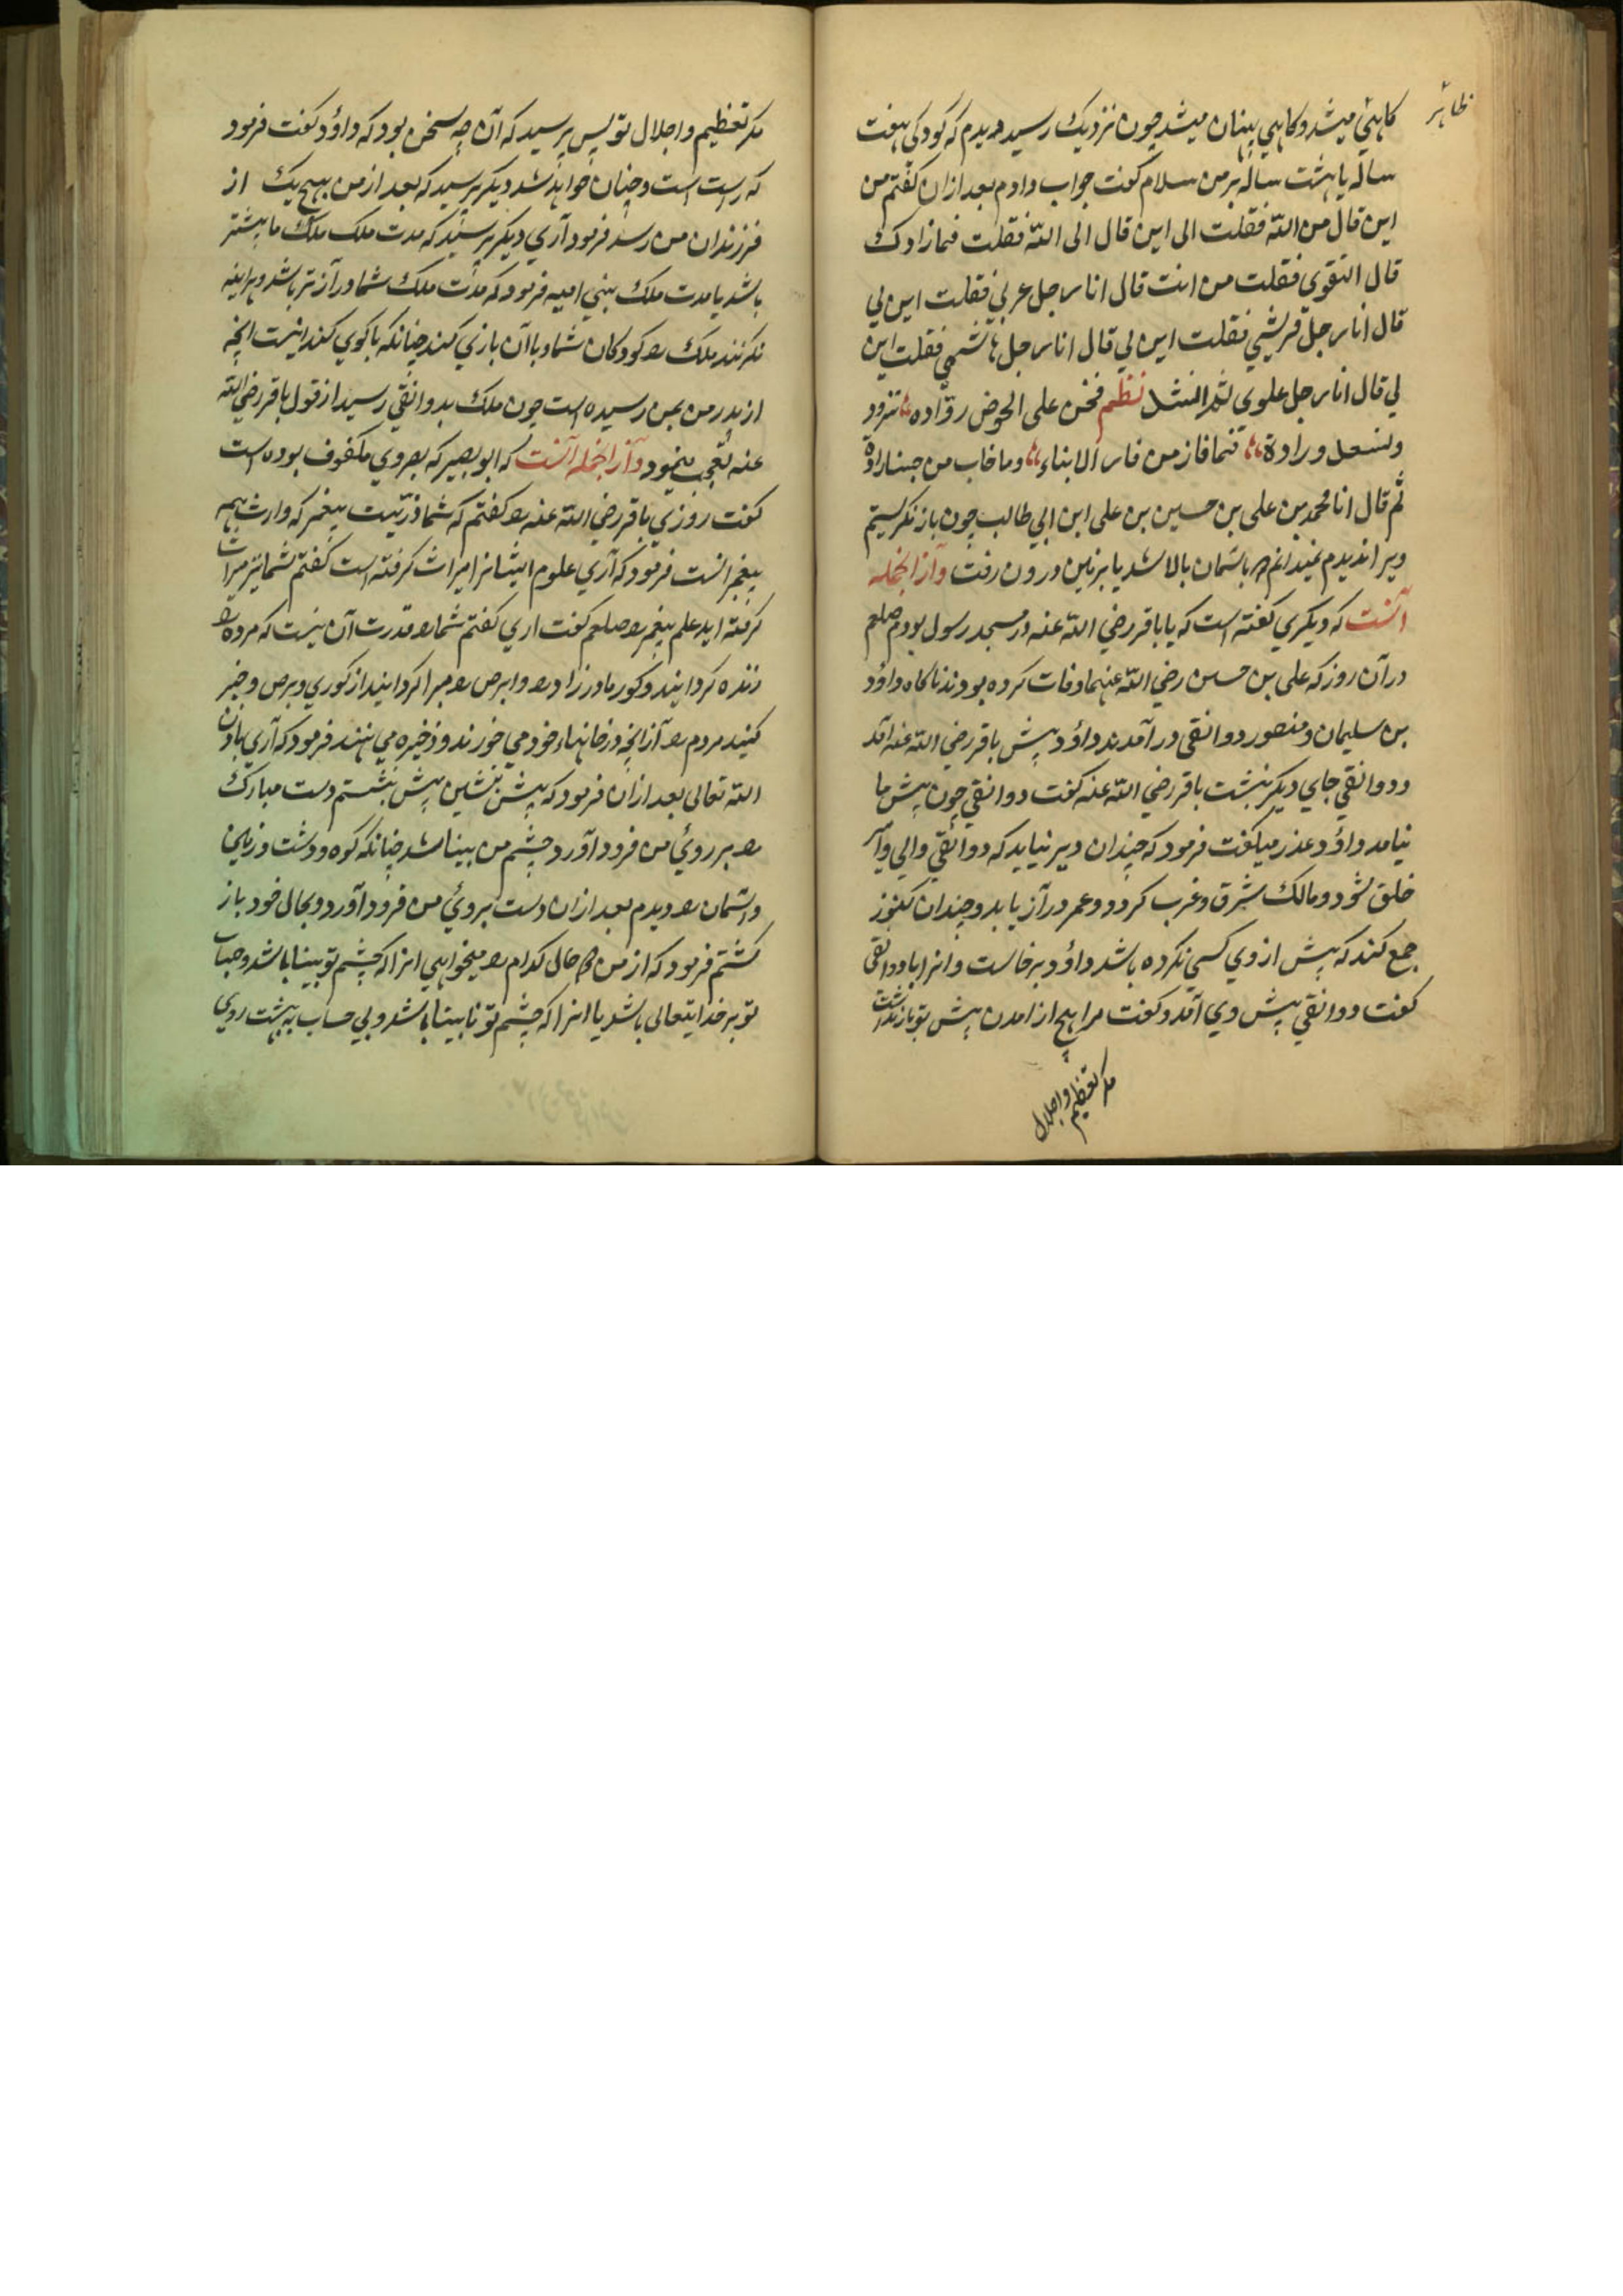 ظاهر
گاهئي میشد و گاهي پنهان میشد چون نزدیک رسید دیدم که کودکی هفت
ساله یا هشت ساله بر من سلام گفت جواب دادم بعد ازان گفتم من
این قال من الله فقلت الی این قال الی الله فقلت فما زادک
قال التقوی فقلت من انت قال انا رجل عربي فقلت ابن لي
قال انا رجل قریشي فقلت ابن لي قال انا رجل هاشمي فقلت ابن
لي قال انا رجل علوي ثم انشد نظم فنحن علی الحوض روّاده تذود
و تسعد ورّاده فما فاز من فاز الا بنا وما خاب من حبنا زاده
ثم قال انا محمد بن علی بن حسین بن علی ابن ابي طالب چون باز نگریستم
ویرا ندیدم نمیدانم که باسمان بالا شد یا بزمین درون رفت و از انجمله
آنست که دیگري گفته است که با باقر رضي الله عنه در مسجد رسول بودم صلعم
در آن روز که علی بن حسین رضي الله عنهما وفات کرده بودند ناگاه داؤد
بن سلیمان و منصور دوانقی در آمدند داؤد پیش باقر رضي الله عنه آمد
و دوانقي جاي دیگر بنشست باقر رضي الله عنه گفت دوانقي چون پیش ما
نیامد داؤد عذر میگفت فرمود که چندان دیر نیاید که دوانقي والي و آمر
خلق شود و مالک شرق و غرب گردد و عمر دراز یابد و چندان کنوز
جمع کند که پیش از وي کسي نکرده باشد داؤد برخاست و انرا با دوانقی
گفت دوانقي پیش وي آمد و گفت مرا هیچ از امدن پیش تو باز نداشت
مگر تعظیم و اجلال
مگر تعظیم و اجلال تو پس پرسید که آن چه سخن بود که داؤد گفت فرمود
که راست است و چنان خواهد شد دیگر پرسید که بعد از من بهیچ یک از
فرزندان من رسد فرمود آري دیگر پرسید که مدت ملک ما بیشتر
باشد یا مدت ملک بني امیه فرمود که مدت ملک شما درازتر باشد و هراینه
ملک را کودکان شما و با آن بازي کنند چنانکه با گوي کنند اینست انچه
از پدر من بمن رسیده است چون ملک بدوانقي رسید از قول باقر رضي الله
عنه تعجب مینمود و از انجمله آنست که ابو بصیر که بصروي مکفوف بوده است
گفت روزي باقر رضي الله عنه را گفتم که شما ذریت پیغمبر که وارث همه
پیغمبرانست فرمود که آري علوم ایشانرا میراث گرفته است گفتم شما نیز میراث
گرفته اید علم پیغمبر را صلعم گفت اري گفتم شما را قدرت آن نیست که مرده را
زنده گردانید و کور مادرزاد را و ابرص را مبرا گردانید از کوري و برص و خبر
کنید مردم را از انچه در خانهاء خود مي خورند و ذخیره مي نهند فرمود که آري باذن
الله تعالی بعد ازان فرمود که پیش بنشین پیش بنشستم دست مبارک
را بر روئ من فرود آورد چشم من بینا شد چنانکه کوه و دشت و زمین
و آسمان را دیدم بعد ازان دست بروئ من فرود آورد و بحال خود باز
گشتم فرمود که از من دو حال کدام را میخواهي انرا که چشم تو بینا باشد و حساب
تو بر خدایتعالی باشد یا انرا که چشم تو نا بینا باشد و بي حساب به بهشت روي